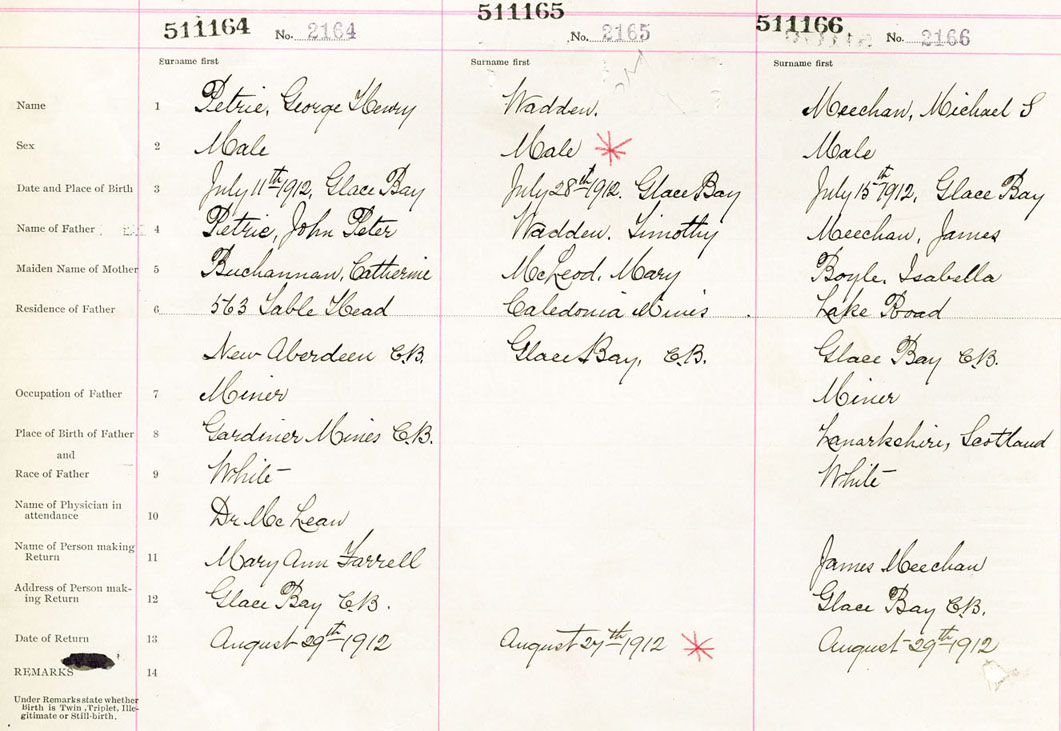 511164 No. 2164 511165 No. 2165 511166 No. 2166
Surname first Surname first Surname first
Name 1 Petrie, George Henry Wadden. Meechan, Michael S
Sex 2 Male Male Male
Date and Place of Birth 3 July 11th 1912, Glace Bay July 28th 1912. Glace Bay July 15th 1912, Glace Bay
Name of Father 4 Petrie, John Peter Wadden. Timothy Meechan, James
Maiden Name of Mother 5 Buchannan, Catherine McLeod, Mary Boyle, Isabella
Residence of Father 6 563 Table Head Caledonia Mines Lake Road
New Aberdeen C.B. Glace Bay, C.B. Glace Bay C.B.
Occupation of Father 7 Miner Miner
Place of Birth of Father 8 Gardiner Mines C.B. Lanarkshire, Scotland
and
Race of Father 9 White White
Name of Physician in
attendance 10 Dr McLean
Name of Person making
Return 11 Mary Ann Farrell James Meechan
Address of Person mak-
ing Return 12 Glace Bay C.B. Glace Bay C.B.
Date of Return 13 August 29th 1912 August 27th 1912 August 29th 1912
REMARKS 14
Under Remarks state whether
Birth is Twin, Triplet, Ille-
gitimate or Still-birth.